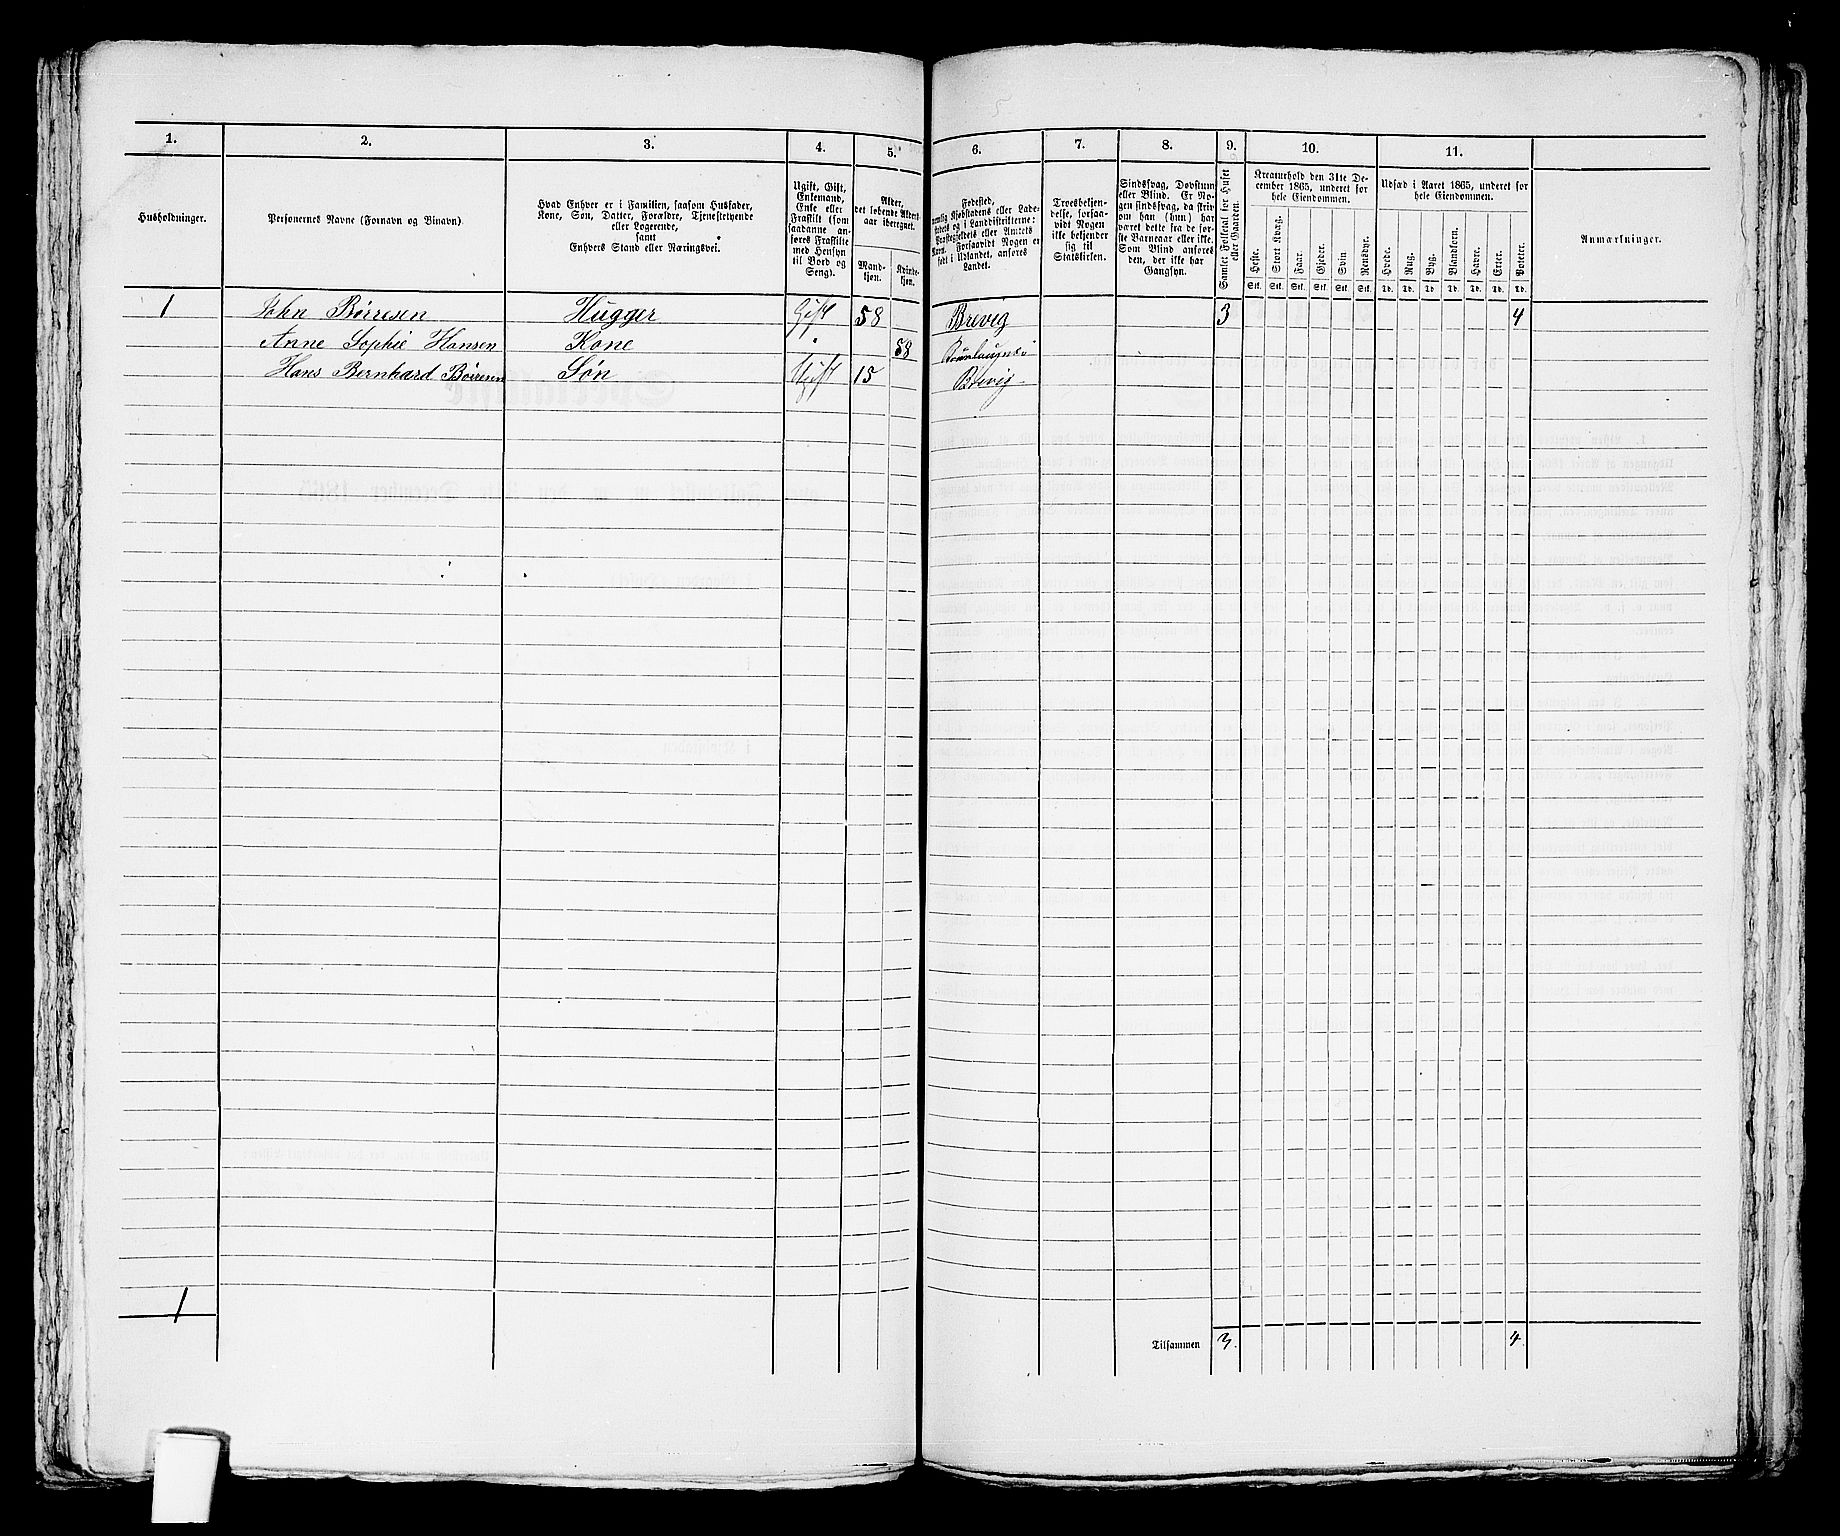 1. 2. 3. 4. 5. 6. 7. 8. 9. 10. 11.
Husholdninger.
Personernes Navne (Fornavn og Binavn).
Hvad Enhver er i Familien, saasom Husfader,
Kone, Søn, Datter, Forældre, Tjenestetyende
eller Logerende,
samt
Enhvers Stand eller Næringsvei.
Ugift, Gift,
Enkemand,
Enke eller
Fraskilt (som
saadanne an-
føres Fraskilte
med Hensyn
til Bord og
Seng).
Alder,
det løbende Alders-
aar iberegnet.
Mand-
kjøn.
Kvinde-
kjøn.
Fødested,
nemlig Kjøbstadens eller Lade-
stedets og i Landdistrikterne:
Præstegjeldets eller Amtets
Navn. Forsaavidt Nogen er
født i Udlandet, anføres
Landet.
Troesbekjen-
delse, forsaa-
vidt Nogen
ikke bekjender
sig til
Statskirken.
Sindssvag, Døvstum
eller Blind. Er No-
gen sindssvag, da skriv
om han (hun) har
været dette fra de før-
ste Barneaar eller ikke.
Som Blind anføres
den, der ikke har
Gangsyn.
Samlet Folketal for Huset
eller Gaarden.
Kreaturhold den 31te De-
cember 1865, underet for
hele Eiendommen.
Heste. Stort Kvæg. Faar. Gjeder. Svin Rensdyr.
Stk. Stk. Stk. Stk. Stk. Stk.
Udsæd i Aaret 1865, underet for
hele Eiendommen.
Hvede. Rug. Byg. Blandkorn. Havre. Erter. Poteter.
Td. Td. Td. Td. Td. Td. Td.
Anmærkninger.
1 John Börresen Hugger Gift 58 Brevig 3 4
Anne Sophie Hansen Kone " 58
Hans Bernhard Börresen Søn Ugift 15 Brevig
1
Tilsammen 3. 4.